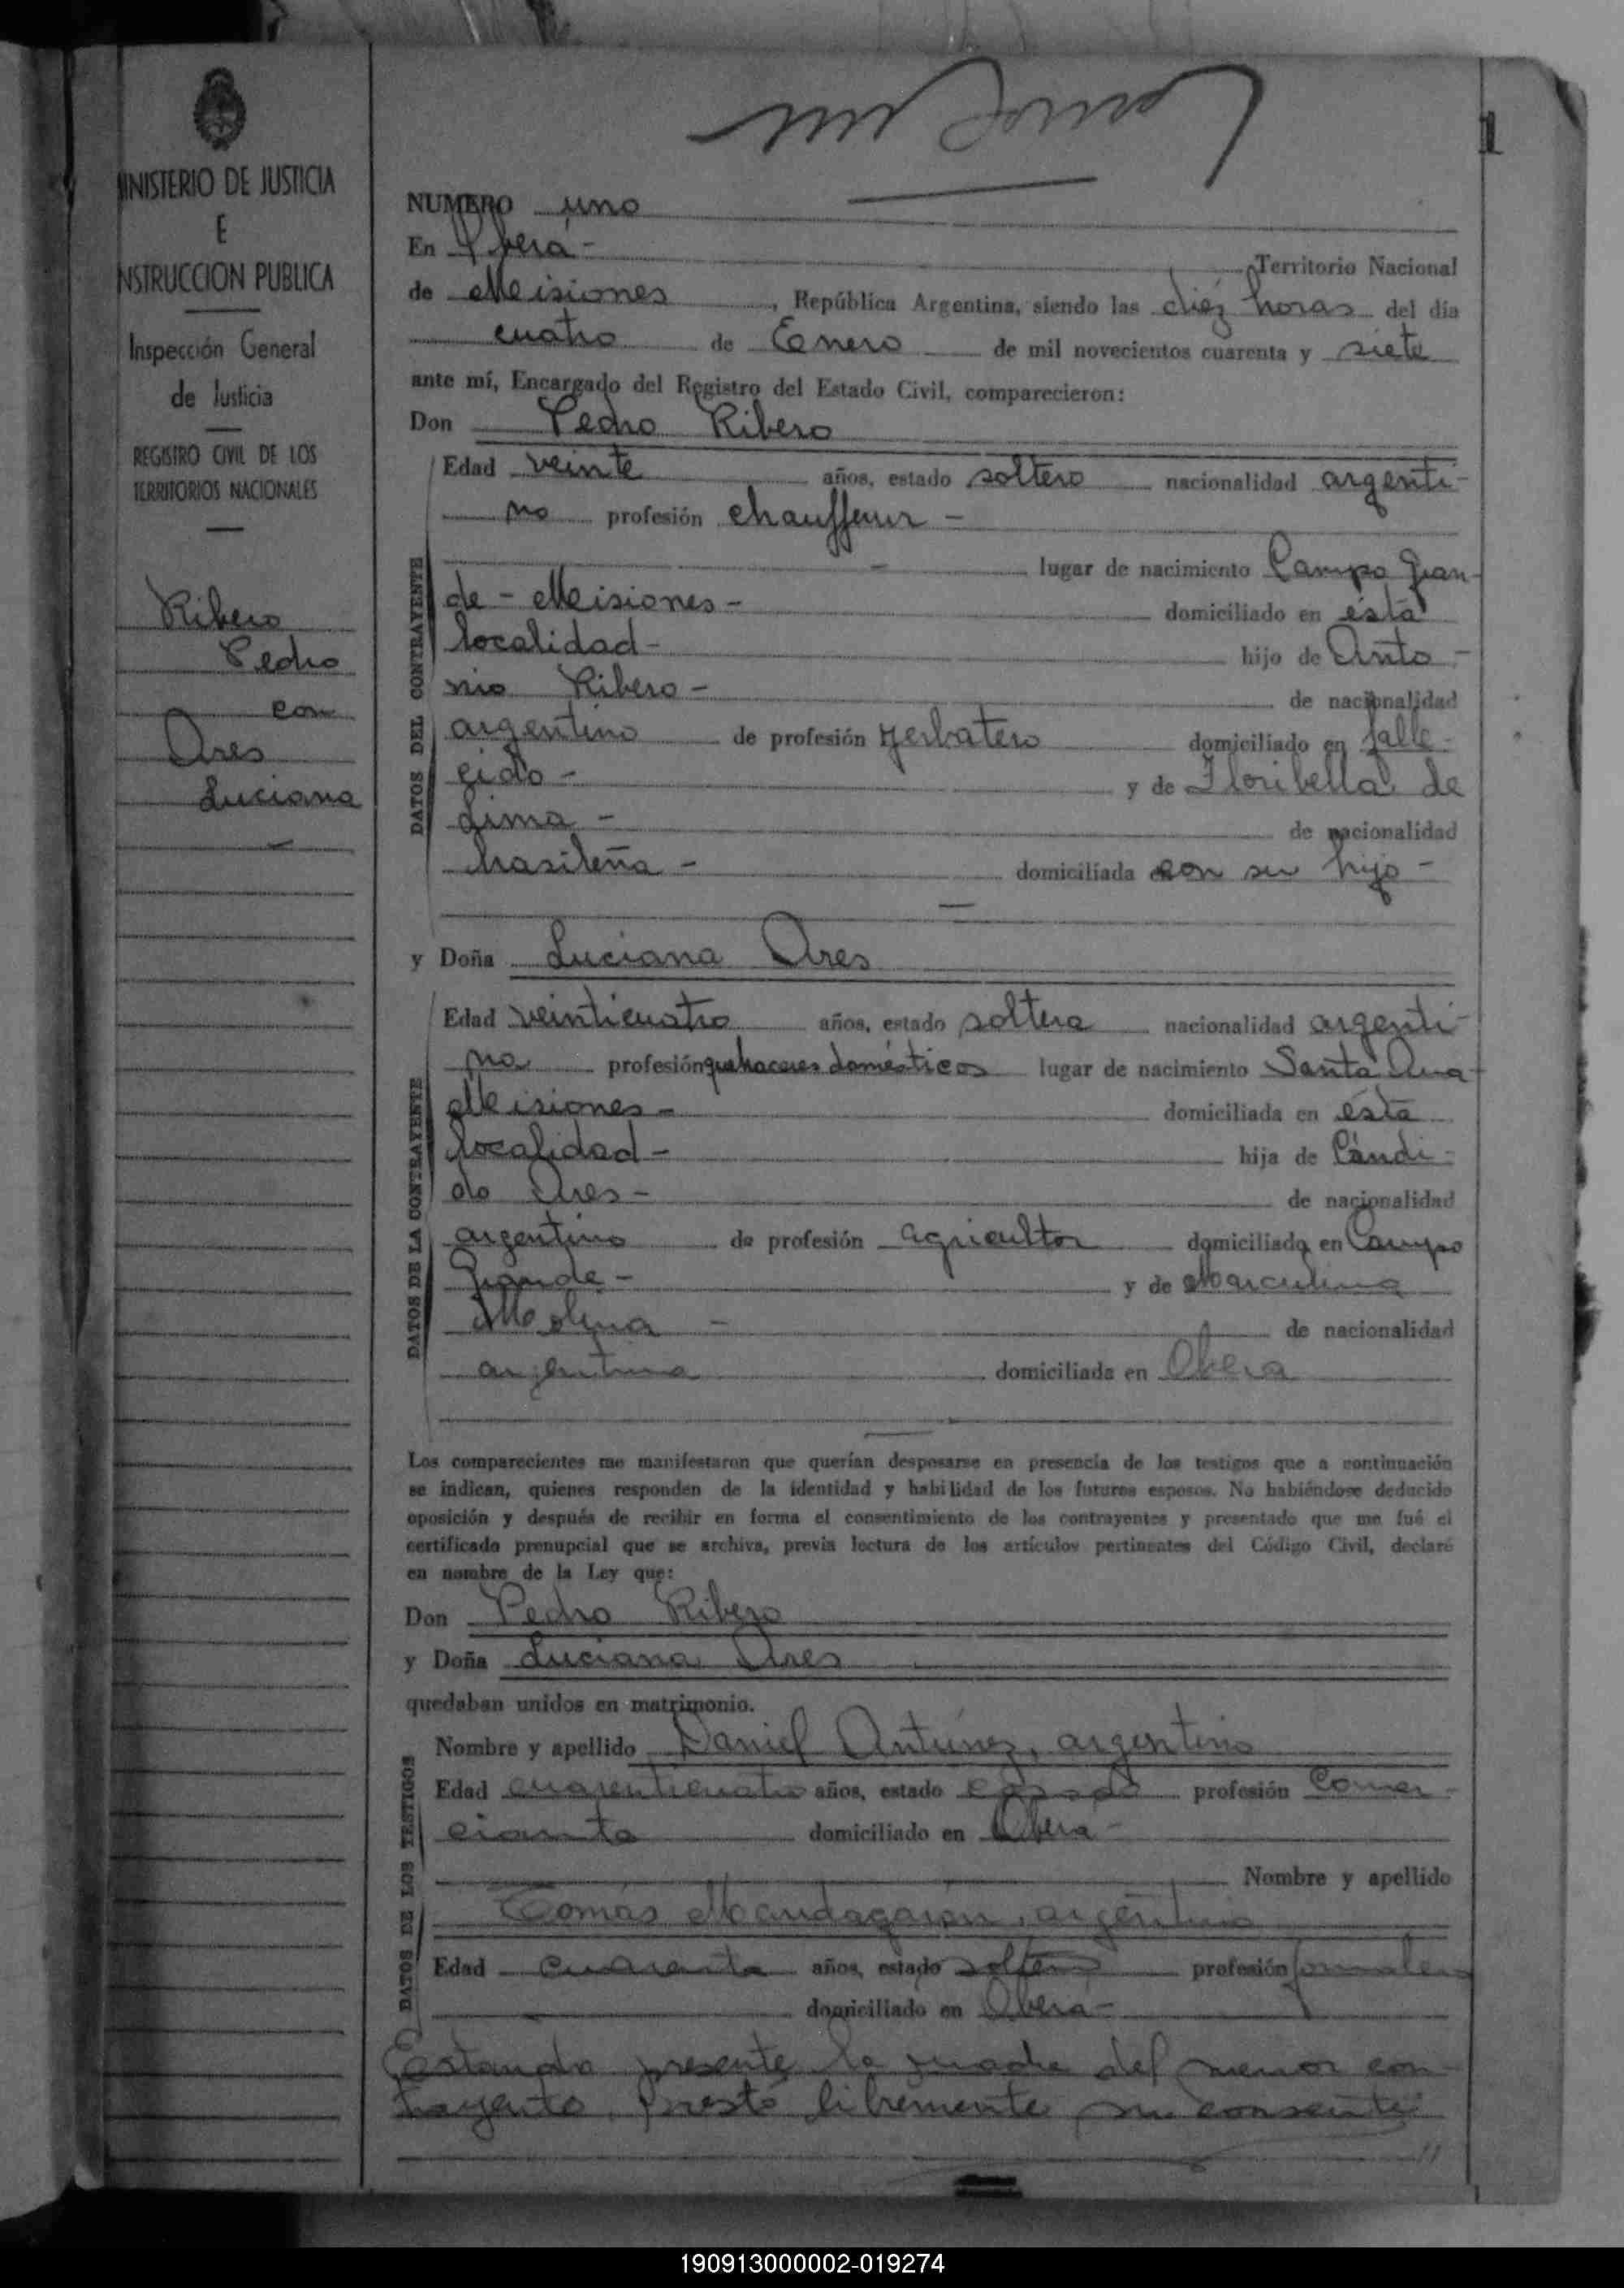 1
MINISTERIO DE JUSTICIA
E
INSTRUCCION PUBLICA
Inspección General
de Justicia
REGISTRO CIVIL DE LOS
TERRITORIOS NACIONALES
Ribero
Pedro
con
Ares
Luciana
NUMERO uno
En Oberá -
Territorio Nacional
de Misiones, República Argentina, siendo las diez horas del día
cuatro de Enero de mil novecientos cuarenta y siete
ante mí, Encargado del Registro del Estado Civil, comparecieron:
Don Pedro Ribero
DATOS DEL CONTRAYENTE
Edad veinte años, estado soltero nacionalidad argenti-
no profesión chauffeur -
- lugar de nacimiento Campo Gran-
de - Misiones - domiciliado en ésta
localidad - hijo de Anto-
nio Ribero - de nacionalidad
argentino de profesión yerbatero domiciliado en falle-
cido - y de Floribella de
Lima - de nacionalidad
brasileña - domiciliada con su hijo -
y Doña Luciana Ares
DATOS DE LA CONTRAYENTE
Edad veinticuatro años, estado soltera nacionalidad argenti-
na profesión quehaceres domésticos lugar de nacimiento Santa Ana-
Misiones - domiciliada en ésta
localidad - hija de Cándi-
do Ares - de nacionalidad
argentino de profesión agricultor domiciliado en Campo
Grande - y de Marculina
Molina - de nacionalidad
argentina domiciliada en Oberá
Los comparecientes me manifestaron que querían desposarse en presencia de los testigos que a continuación
se indican, quienes responden de la identidad y habilidad de los futuros esposos. No habiéndose deducido
oposición y después de recibir en forma el consentimiento de los contrayentes y presentado que me fué el
certificado prenupcial que se archiva, previa lectura de los artículos pertinentes del Código Civil, declaré
en nombre de la Ley que:
Don Pedro Ribero
y Doña Luciana Ares
quedaban unidos en matrimonio.
DATOS DE LOS TESTIGOS
Nombre y apellido Daniel Antúnez, argentino
Edad cuarenticuatro años, estado casado profesión Comer-
ciante domiciliado en Oberá -
Nombre y apellido
Tomás Mandagarán, argentino
Edad cuarenta años, estado soltero profesión jornalero
domiciliado en Oberá -
Estando presente la madre del menor con-
trayente, prestó libremente su consenti-
//
190913000002-019274